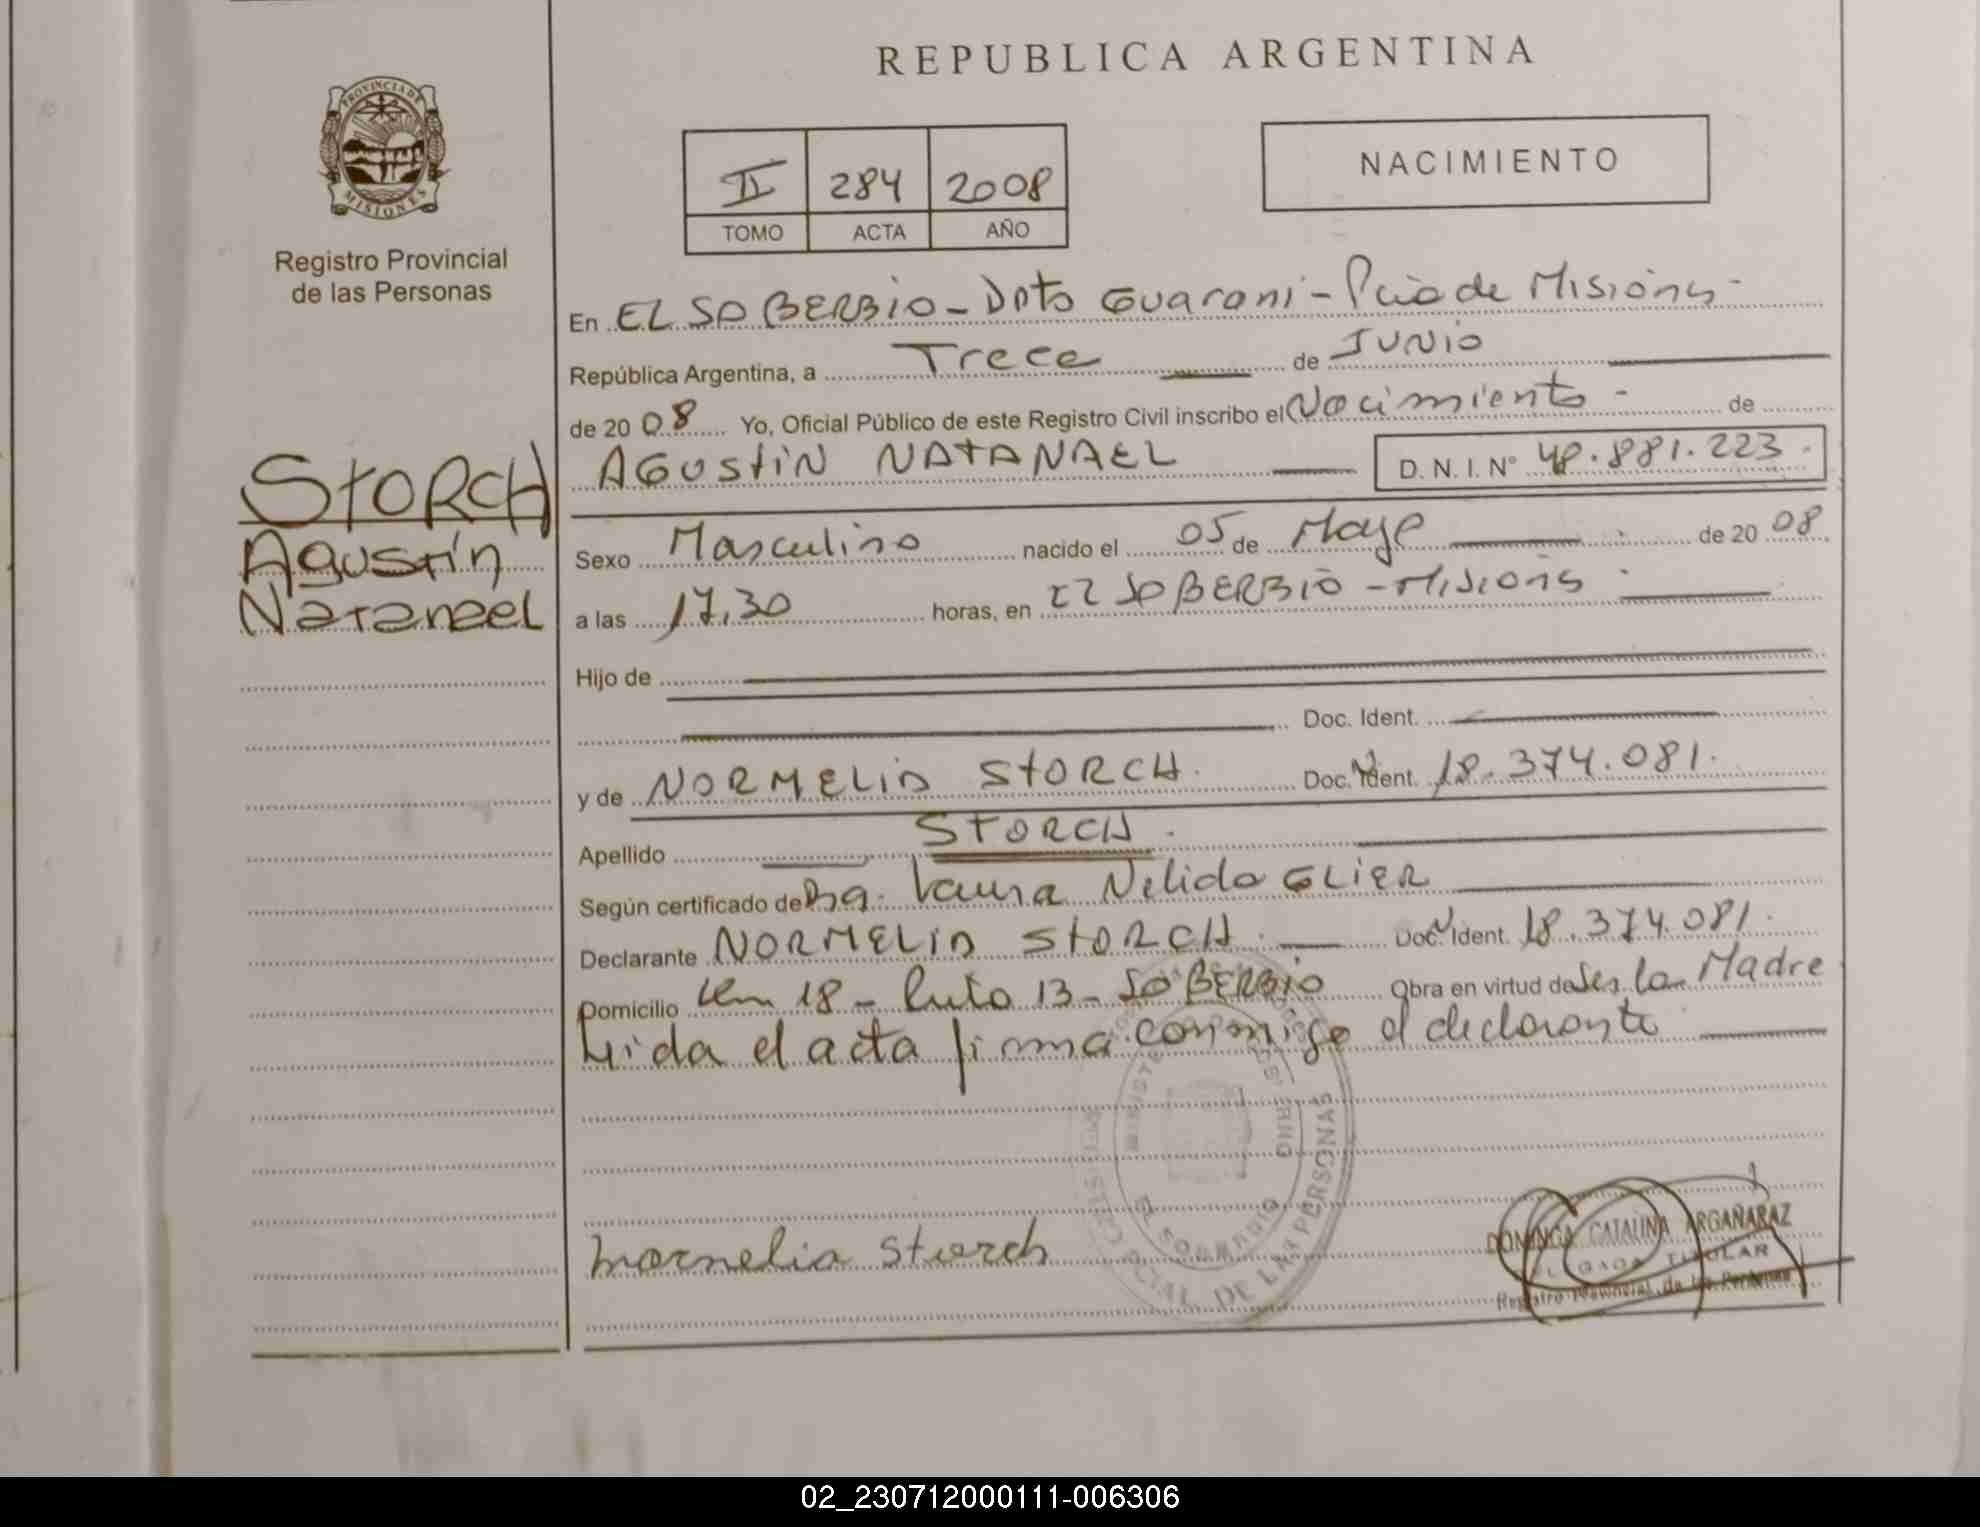 REPUBLICA ARGENTINA
PROVINCIA DE
MISIONES
Registro Provincial
de las Personas
II 284 2008
TOMO ACTA AÑO
NACIMIENTO
En EL SOBERBIO - Dpto Guarani - Pcia de Misiones -
República Argentina, a Trece de JUNIO
de 2008 Yo, Oficial Público de este Registro Civil inscribo el Nacimiento - de
AGUSTIN NATANAEL D. N. I. N° 48.881.223.
STORCH
Agustín
Natanael
Sexo Masculino nacido el 05 de Mayo de 2008
a las 17,30 horas, en EL SOBERBIO - Misiones
Hijo de
Doc. Ident.
y de NORMELIA STORCH. Doc. Ident. 18.374.081.
Apellido STORCH.
Según certificado de Laura Nelida GLIER
Declarante NORMELIA STORCH. Doc. Ident. 18.374.081.
Domicilio Km 18 - Ruta 13 - SOBERBIO Obra en virtud de Ser la Madre
Leida el acta firma conmigo el declarante
EL SOBERBIO
PROVINCIAL DE LAS PERSONAS
Normelia Storch
DOMINGA CATALINA ARGAÑARAZ
DELEGADA TITULAR
Registro Provincial de las Personas
02_230712000111-006306